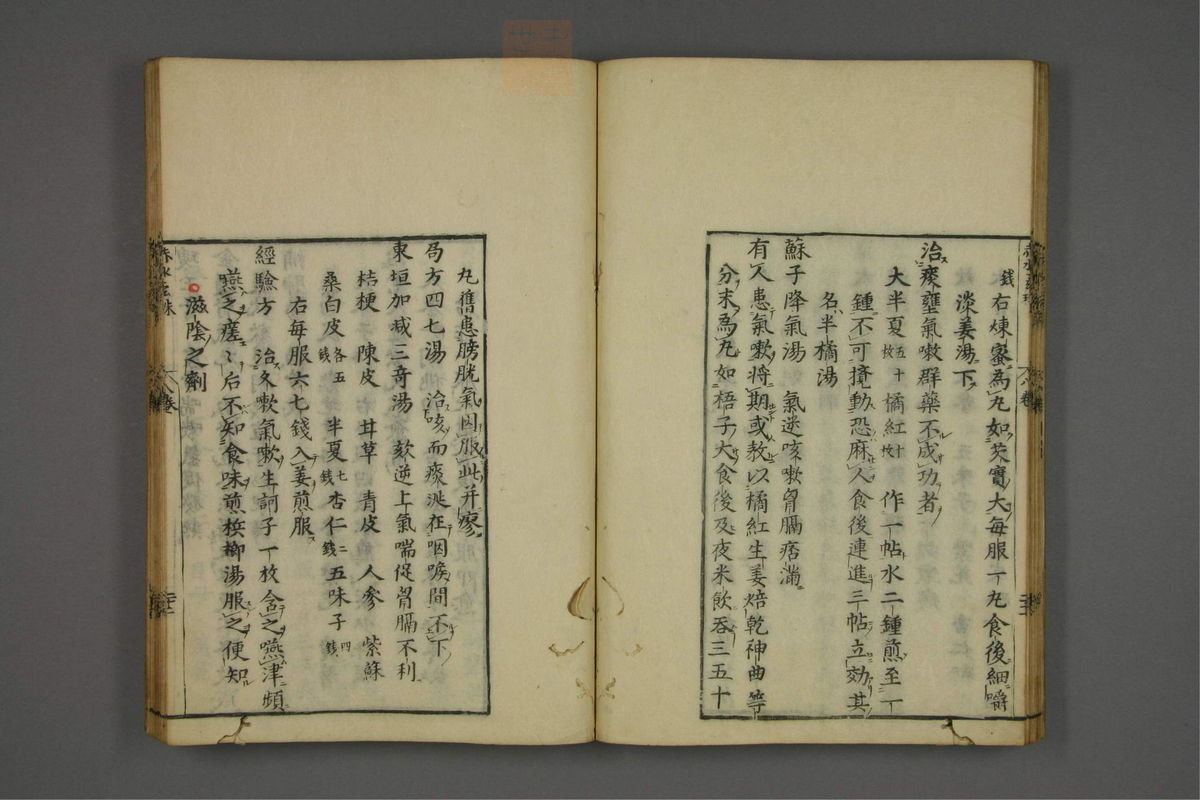 錢右煉蜜為丸如芡實大每服一丸食後細嚼
淡姜湯下
治痰壅氣嗽群藥不成功者
大半夏五十枚橘紅十枚作一帖水二鍾煎至一
鍾不可攪動恐麻人食後連進三帖立効其
名半橘湯
蘇子降氣湯 氣逆咳嗽胷膈痞滿
有人患氣嗽將期或教以橘紅生姜焙乾神曲等
分末為丸如梧子大食後及夜米飲吞三五十
丸舊患膀胱氣因服此并瘳
局方四七湯 治咳而痰涎在咽喉間不下
東垣加減三奇湯 欬逆上氣喘促胷膈不利
桔梗 陳皮 甘草 青皮 人參 紫蘇
桑白皮各五錢 半夏七錢 杏仁二錢 五味子四錢
右每服六七錢入姜煎服
經驗方 治久嗽氣嗽生訶子一枚含之嚥津頻
嚥之瘥瘥后不知食味煎梹榔湯服之便知
滋陰之劑